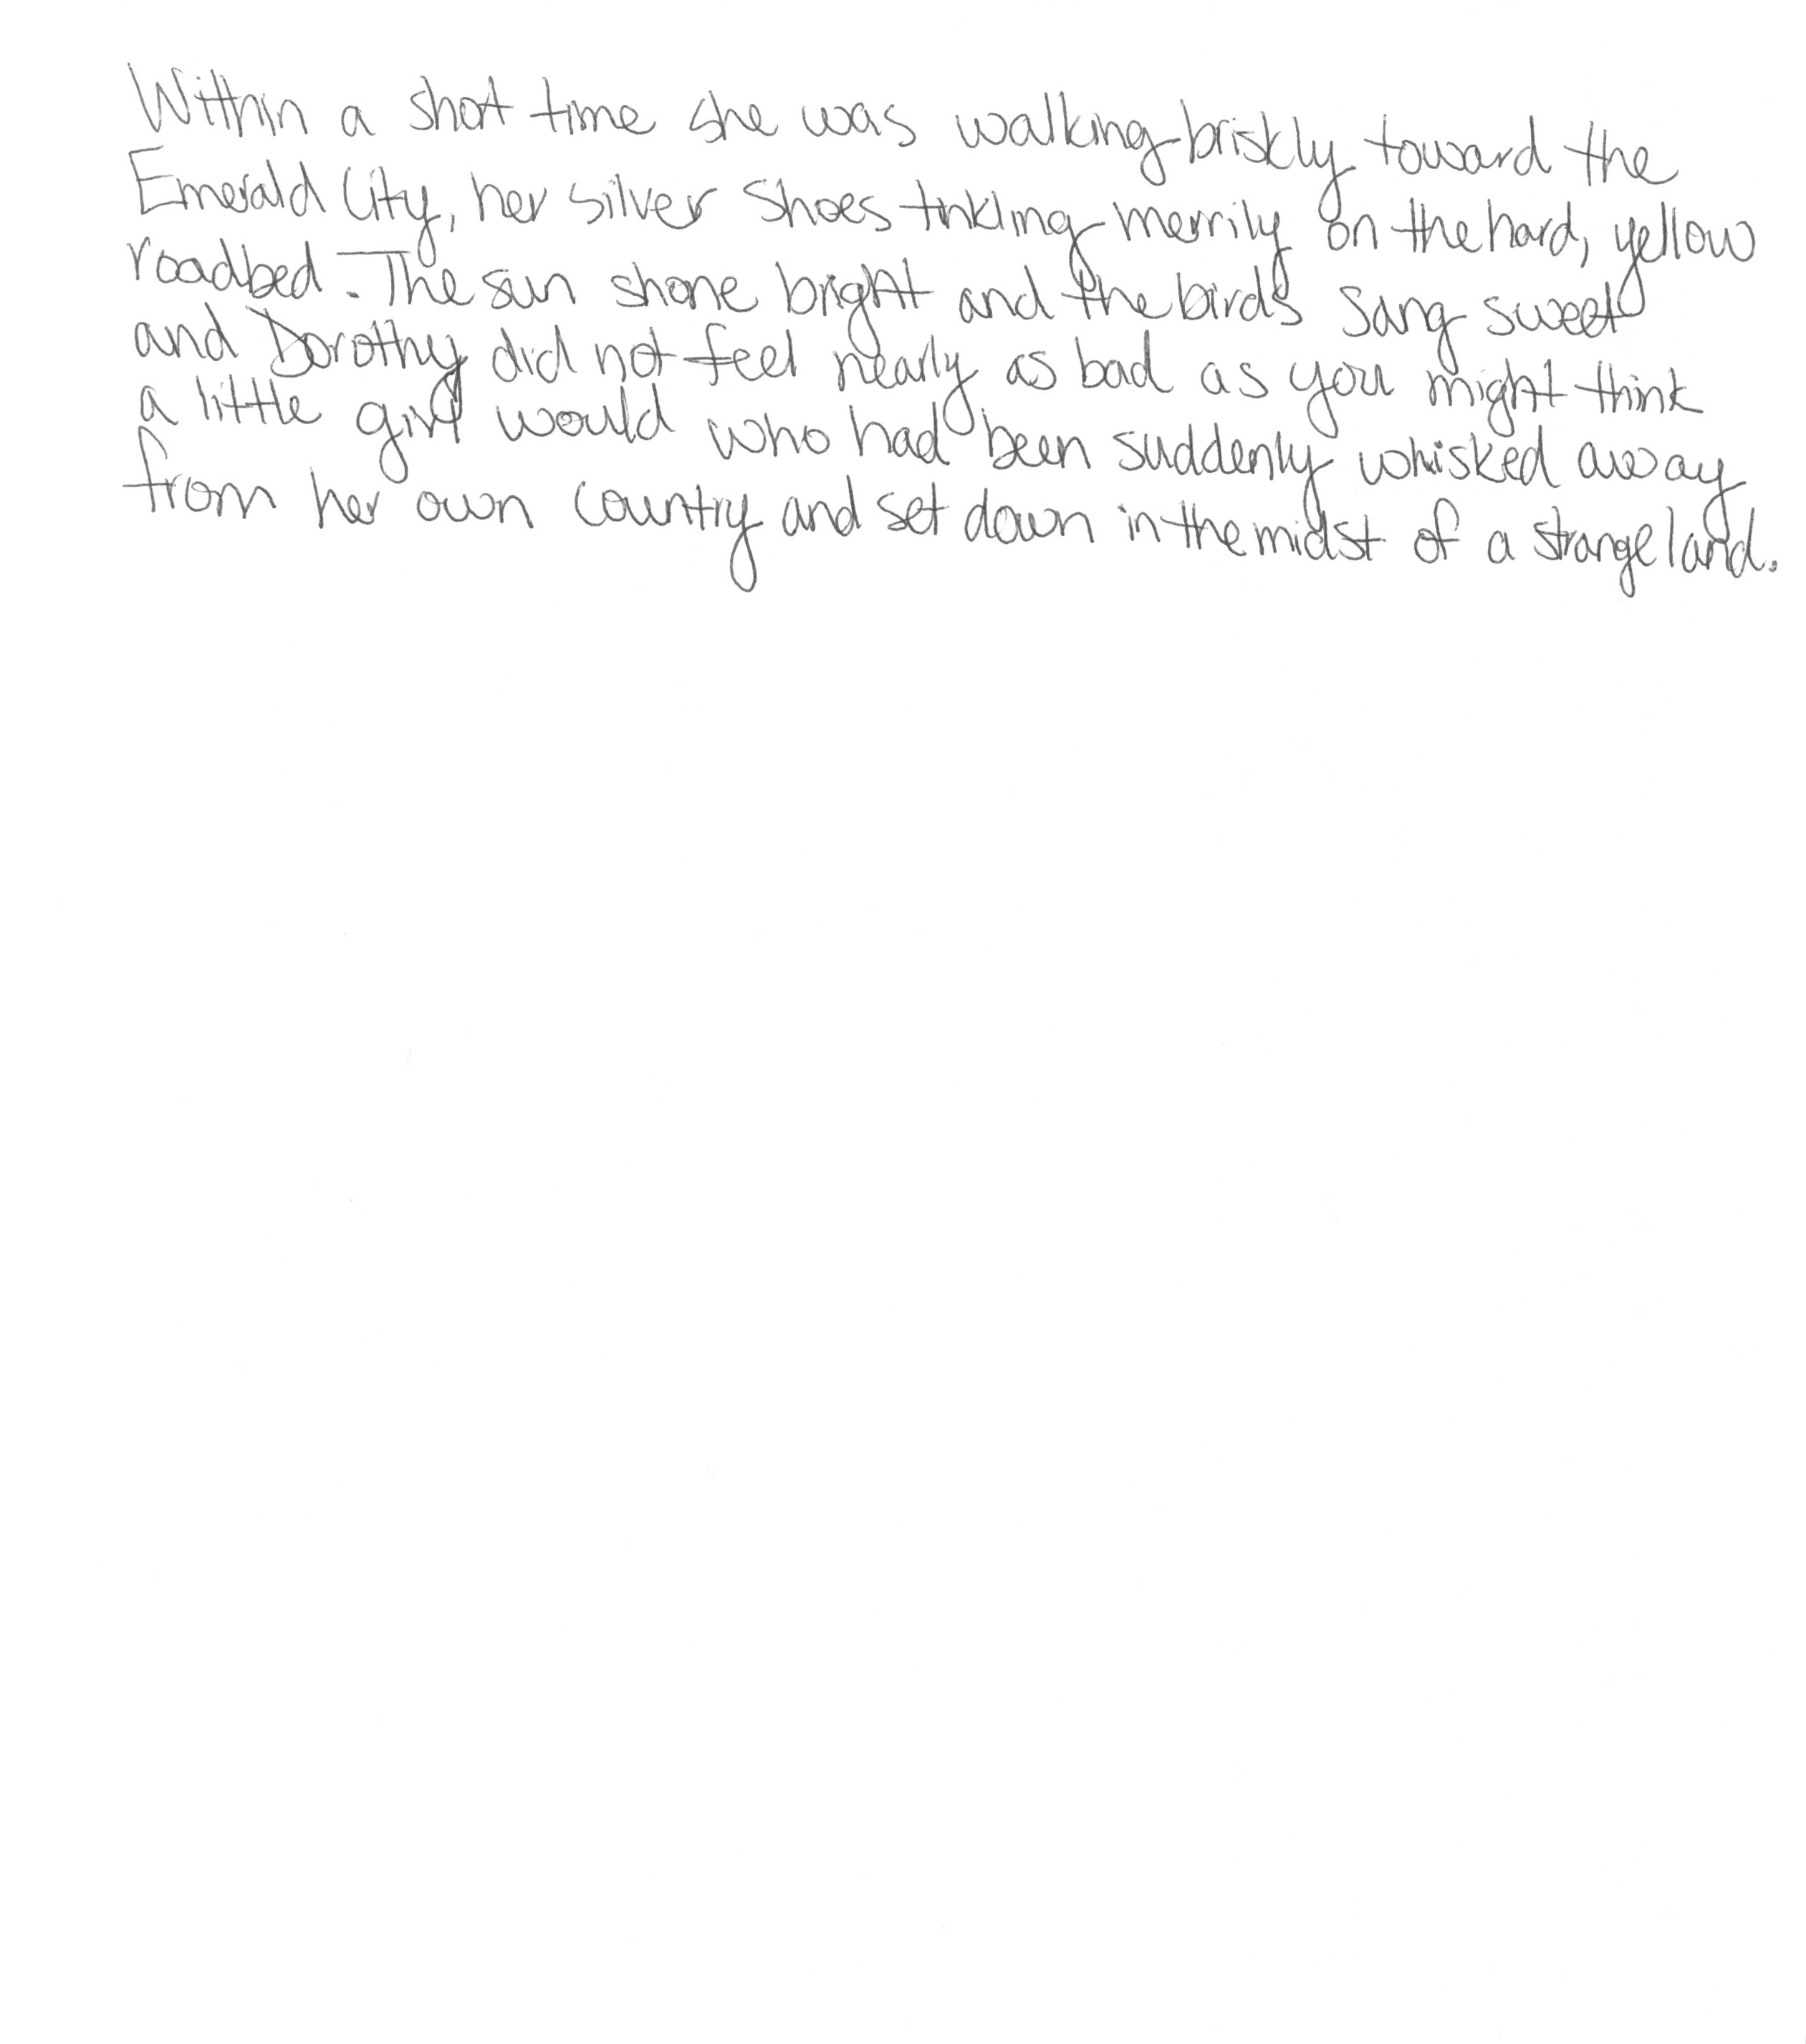 Within a short time she was walking briskly toward the
Emerald City, her silver shoes tinkling merrily on the hard, yellow
roadbed. The sun shone bright and the birds sang sweet
and Dorothy did not feel nearly as bad as you might think
a little girl would who had been suddenly whisked away
from her own country and set down in the midst of a strange land.